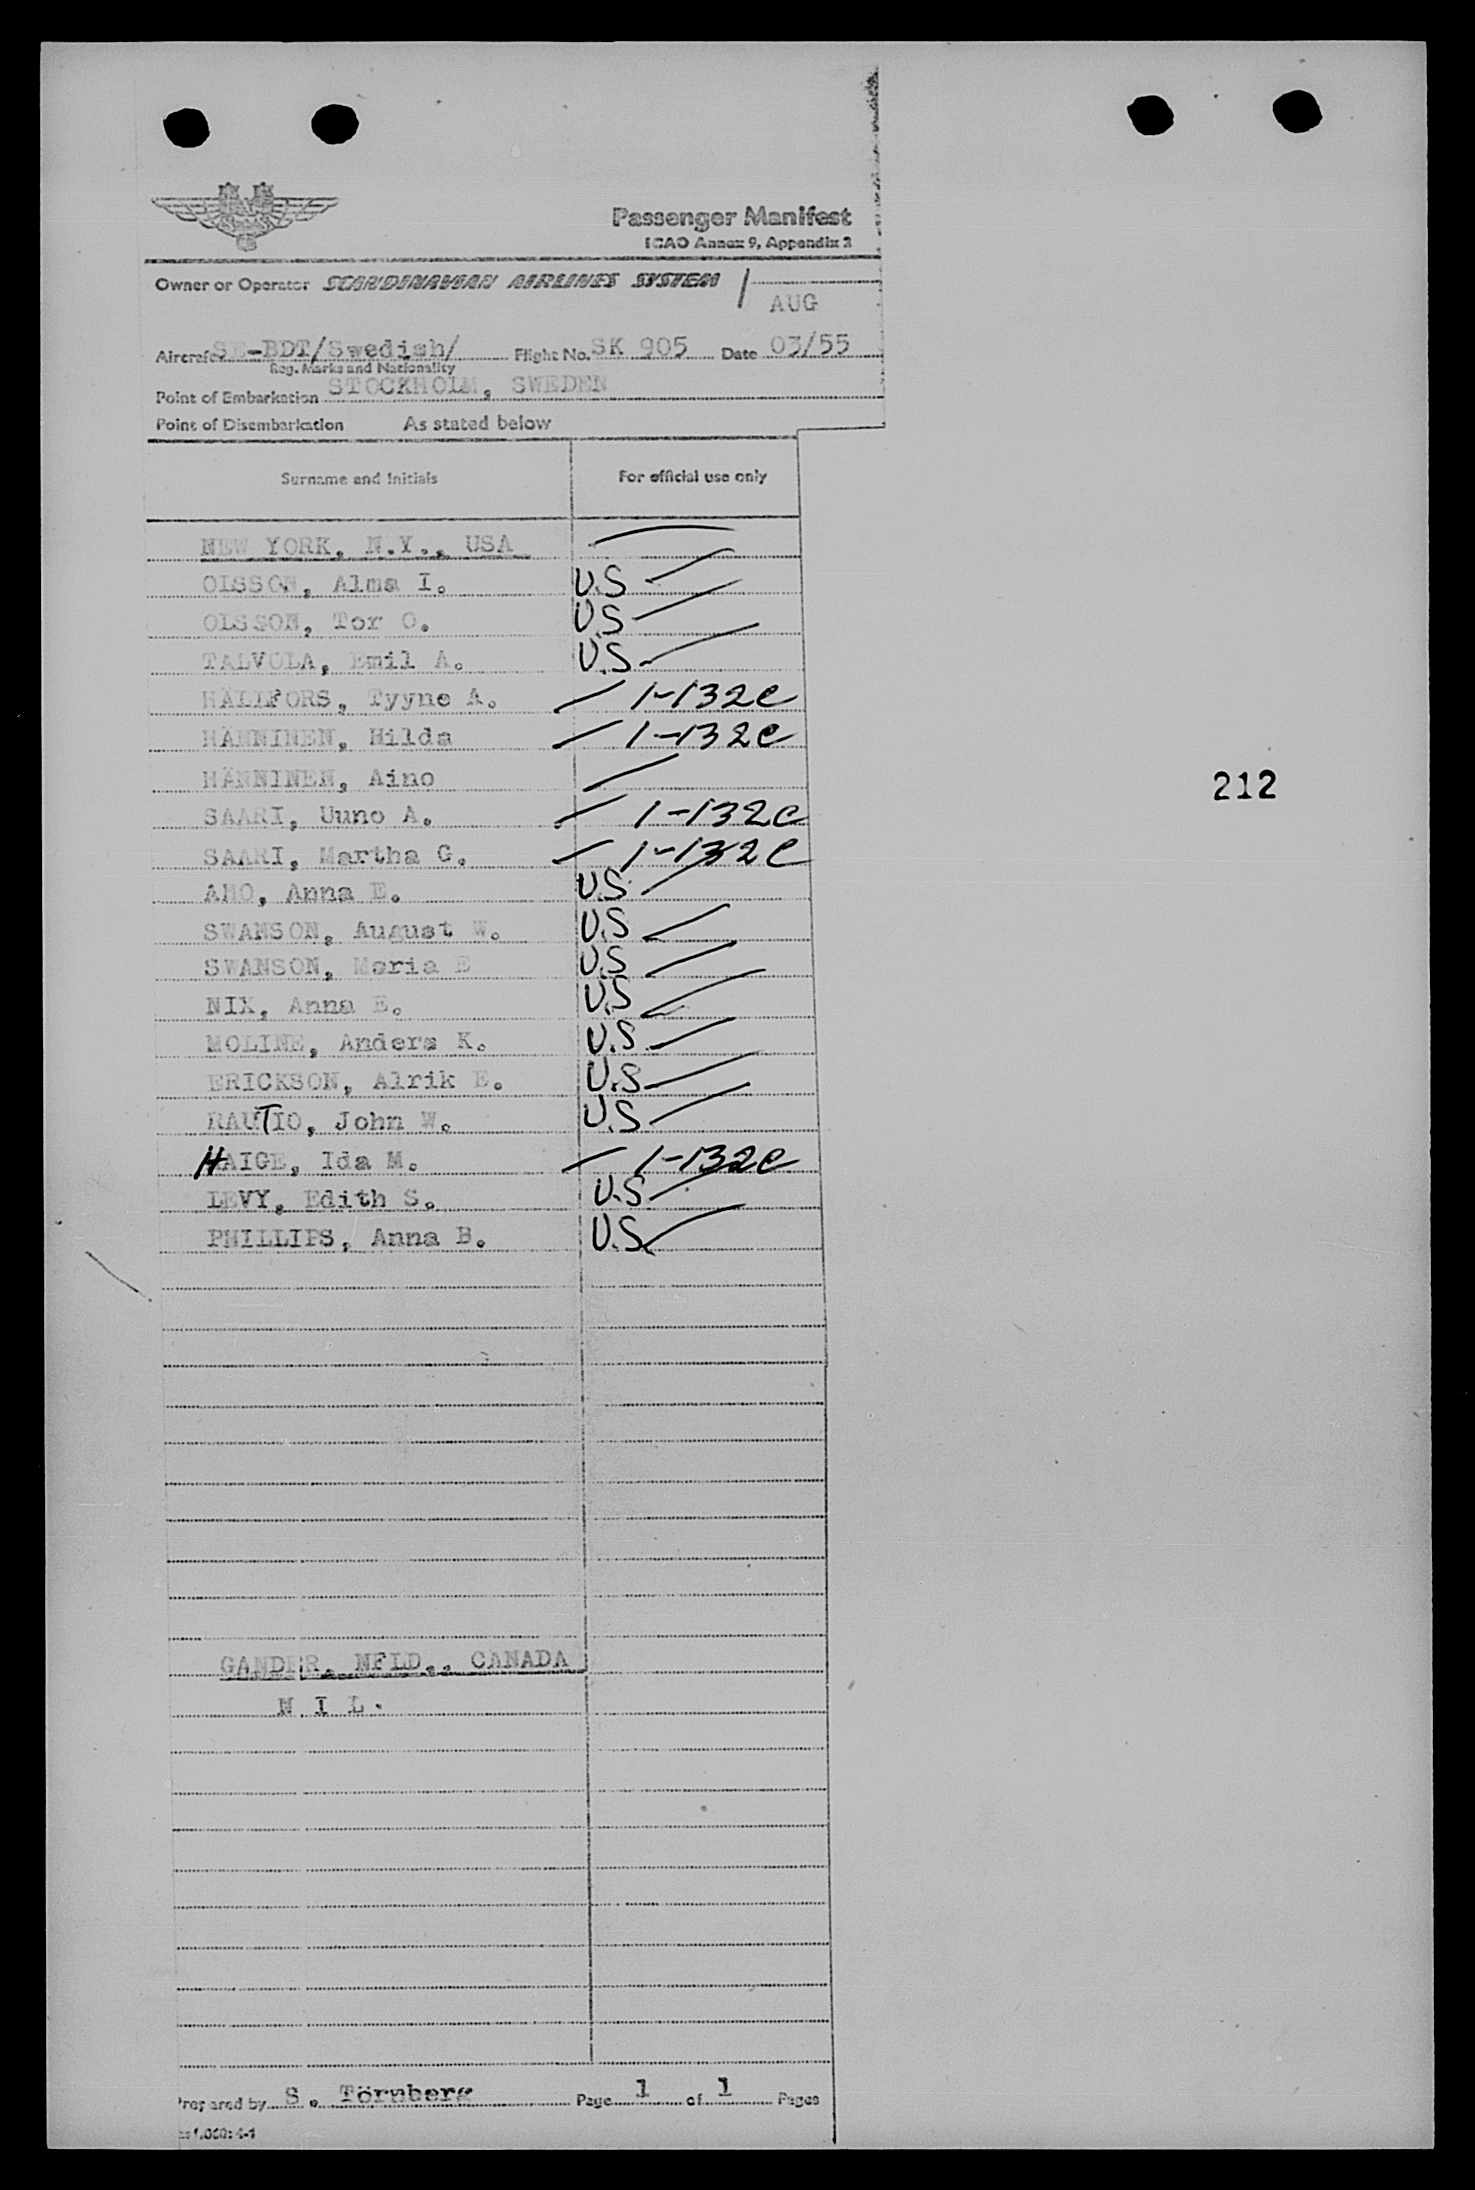 Passenger Manifest
ICAO Annex 9, Appendix 2
Owner or Operator SCANDINAVIAN AIRLINES SYSTEM /
AUG
Aircraft SE-BDT/Swedish/ Flight No. SK 905 Date 03/55
Reg. Marks and Nationality
Point of Embarkation STOCKHOLM, SWEDEN
Point of Disembarkation As stated below
Surname and Initials For official use only
NEW YORK, N.Y., USA
OLSSON, Alma I. U.S
OLSSON, Tor O. U.S
TALVOLA, Emil A. U.S
HÄLLFORS, Tyyne A. 1-132e
HÄNNINEN, Hilda 1-132e
HÄNNINEN, Aino
SAARI, Uuno A. 1-132e
212
SAARI, Martha G. 1-132e
AHO, Anna E. U.S.
SWANSON, August W. U.S
SWANSON, Maria E U.S
NIX, Anna E. U.S
MOLINE, Anders K. U.S
ERICKSON, Alrik E. U.S
RAUTIO, John W. U.S
HAIGE, Ida M. 1-132e
LEVY, Edith S. U.S
PHILLIPS, Anna B. U.S.
GANDER, NFLD., CANADA
N I L.
Prepared by S. Törnberg Page 1 of 1 Pages